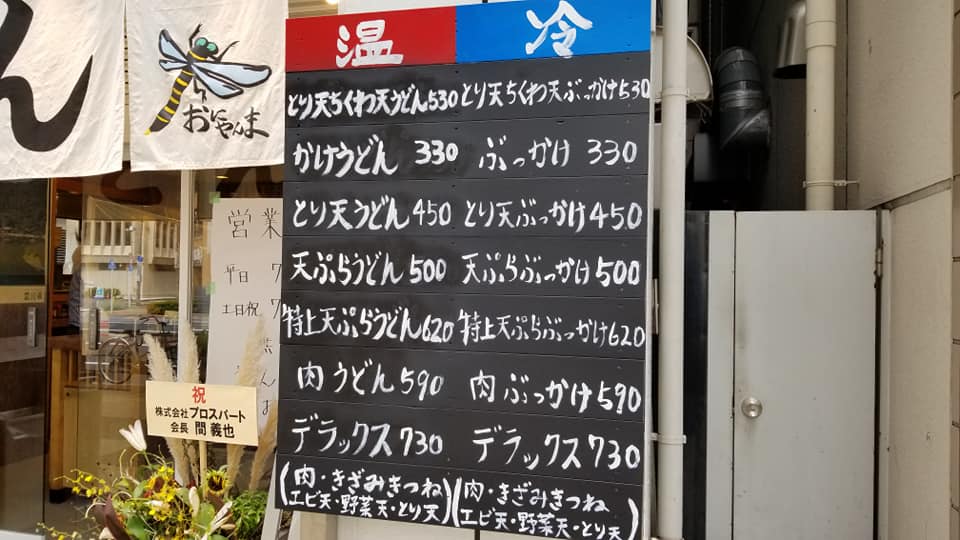 ん
おにやんま
温 冷
とり天ちくわ天うどん530 とり天ちくわ天ぶっかけ530
かけうどん 330 ぶっかけ 330
とり天うどん450 とり天ぶっかけ450
天ぷらうどん500 天ぷらぶっかけ500
特上天ぷらうどん620 特上天ぷらぶっかけ620
肉うどん590 肉ぶっかけ590
デラックス730 デラックス730
(肉・きざみきつね (肉・きざみきつね
エビ天・野菜天・とり天) エビ天・野菜天・とり天)
営業
平日 7
土日祝 7
祝
株式会社 プロスパート
会長 間 義也